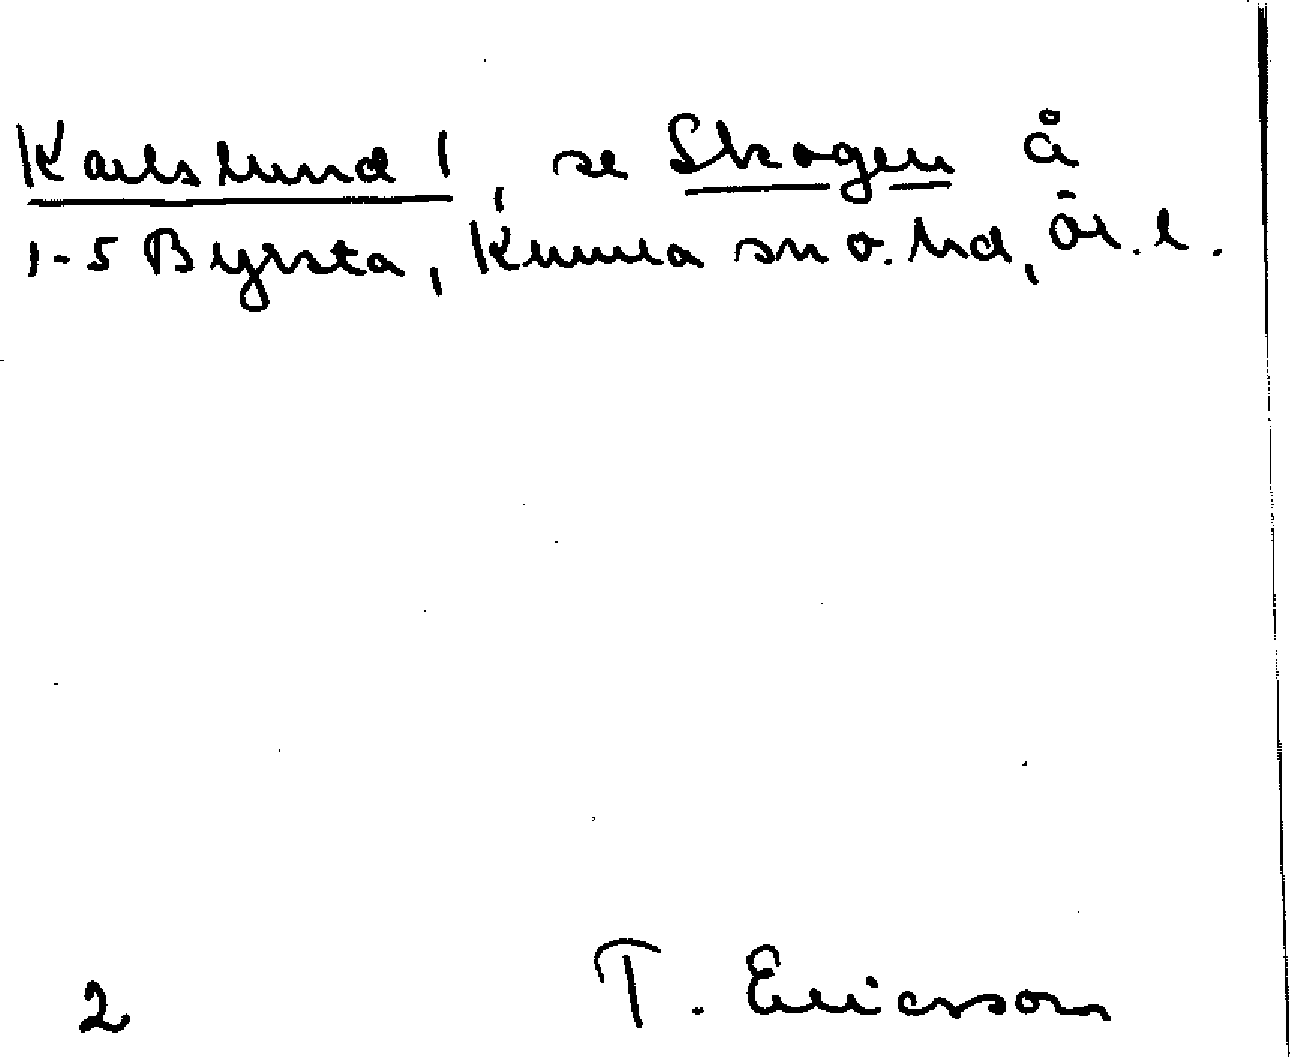 Karlslund 1, se Skogen å
1-5 Byrsta, Kumla sn o. hd, Ör. l.
2 T. Ericsson